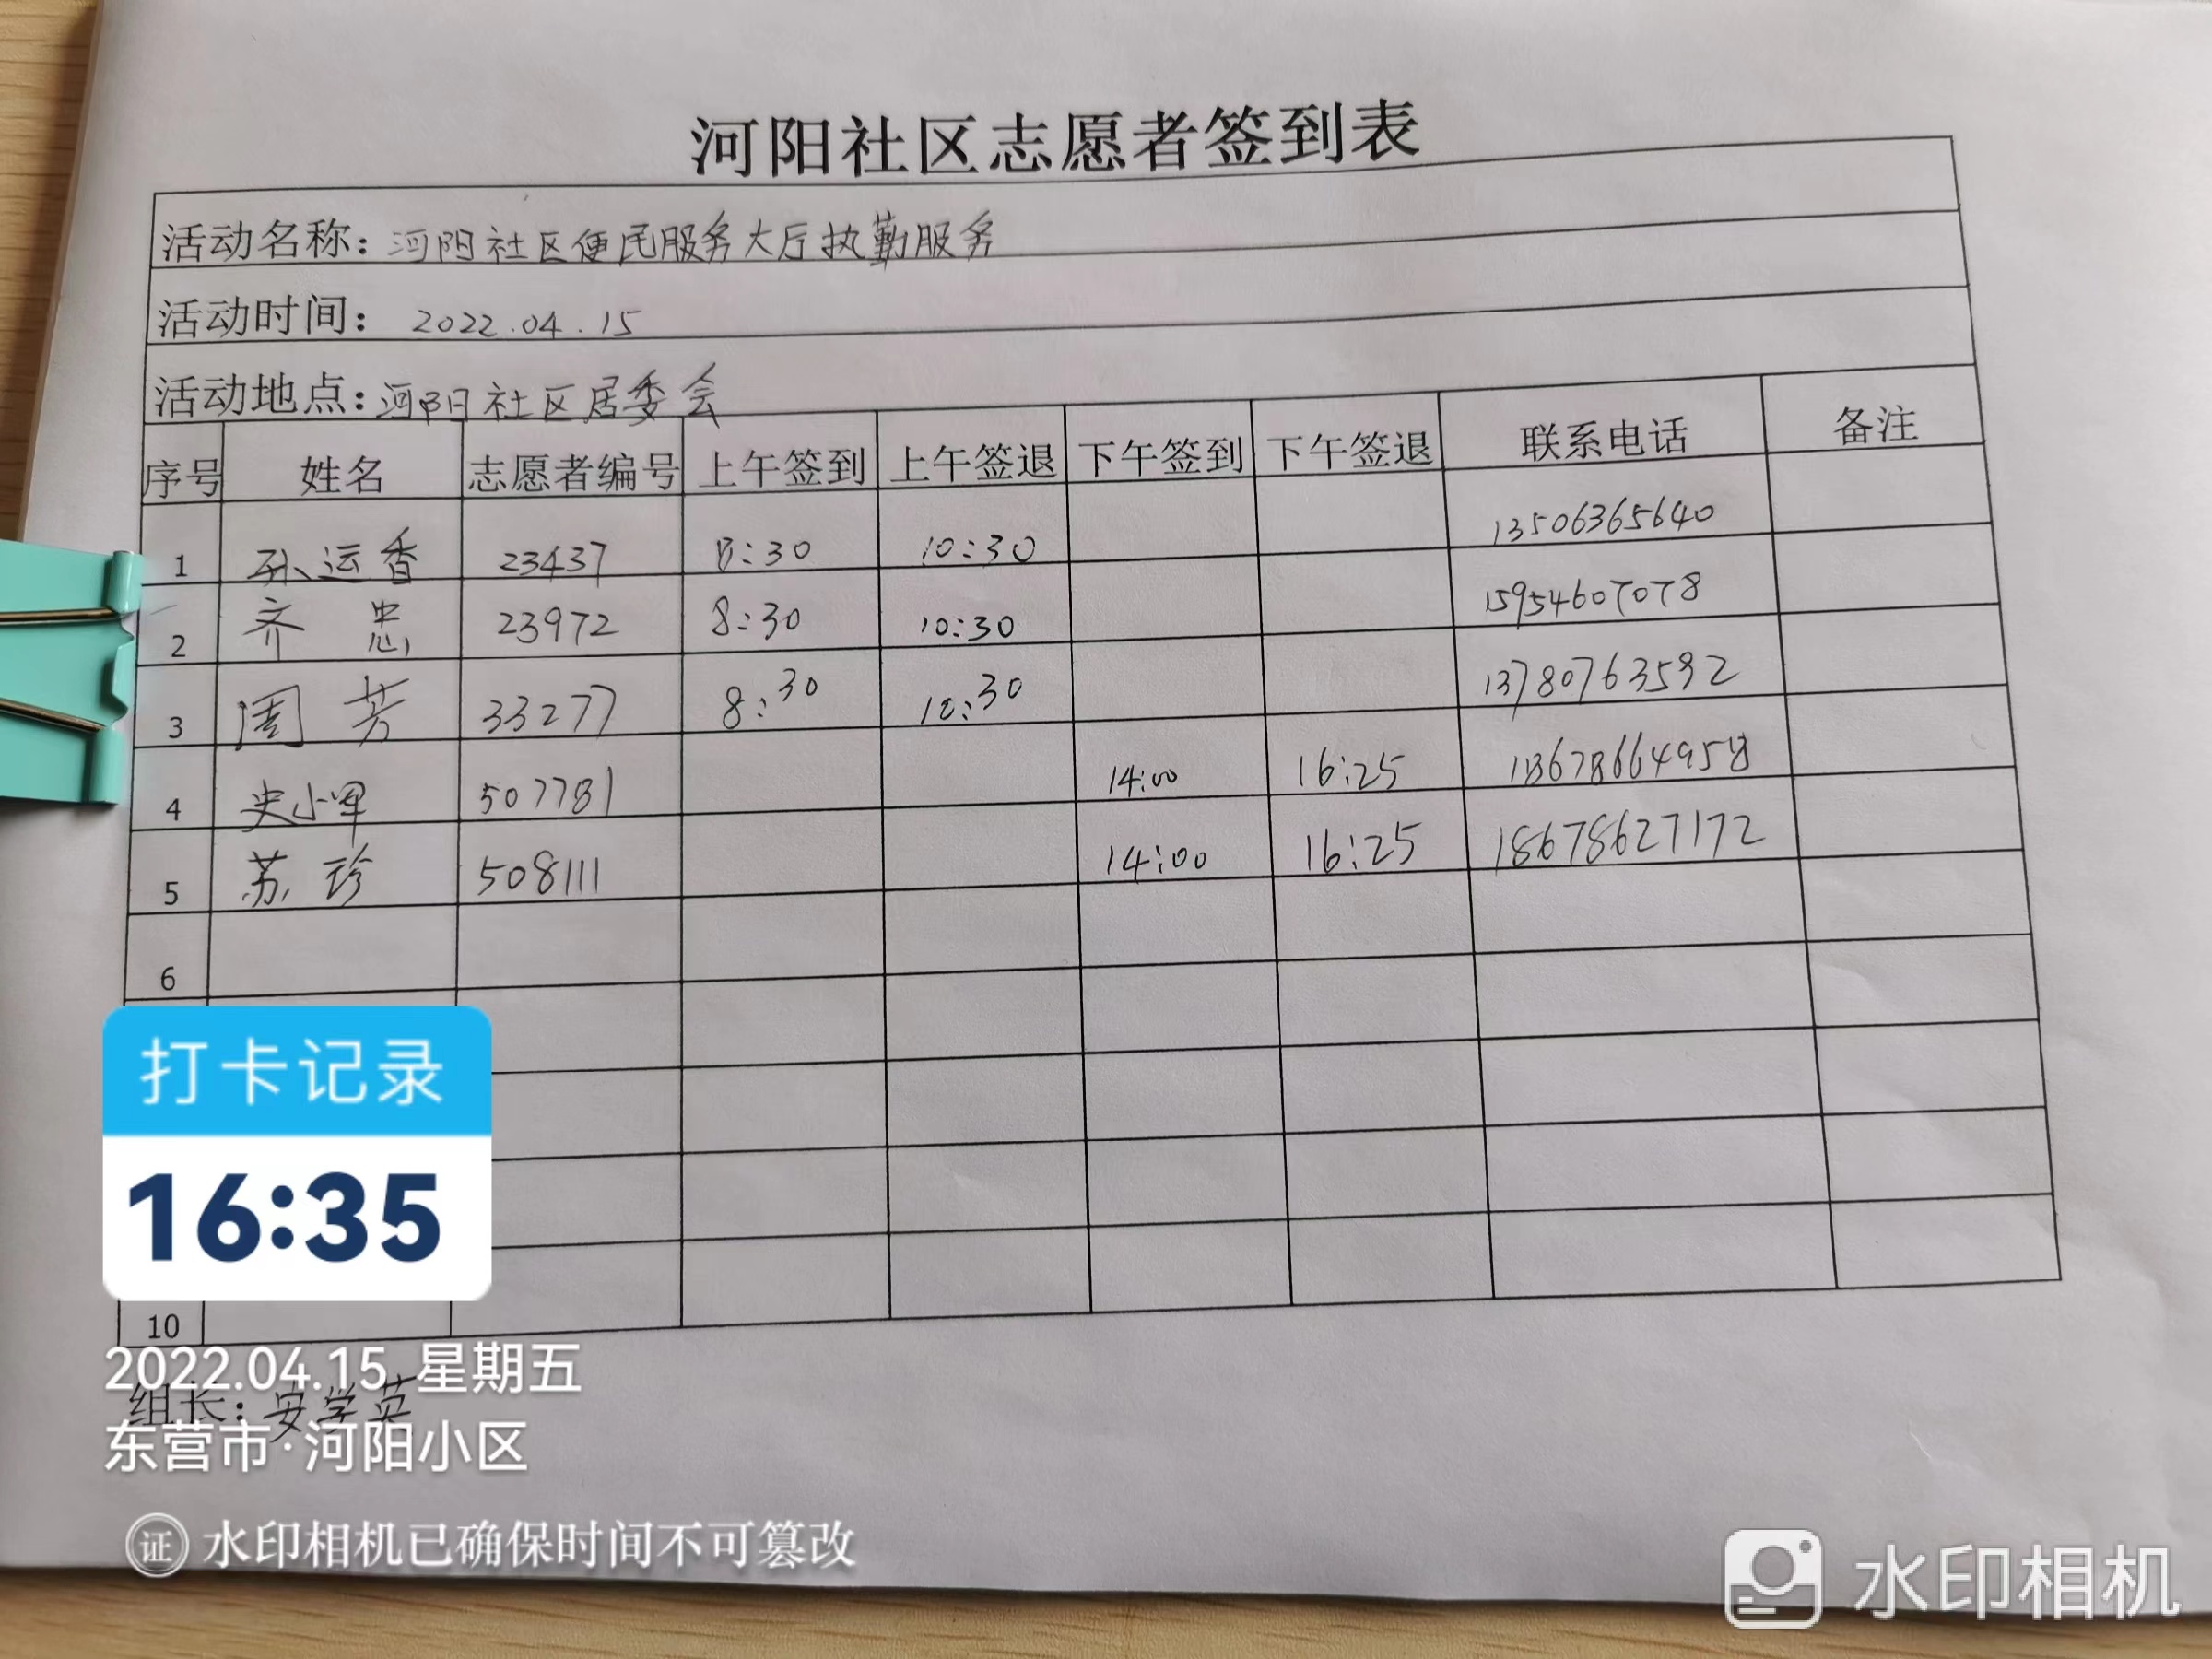 河阳社区志愿者签到表
活动名称：河阳社区便民服务大厅执勤服务
活动时间： 2022.04.15
活动地点：河阳社区居委会
序号 姓名 志愿者编号 上午签到 上午签退 下午签到 下午签退 联系电话 备注
1 孙运香 23437 8:30 10:30 13506365640
2 齐忠 23972 8:30 10:30 15954607078
3 周芳 33277 8:30 10:30 13780763592
4 史小军 507781 14:00 16:25
5 苏珍 508111 14:00 16:25 18678627172
6
10
打卡记录
16:35
2022.04.15 星期五
组长：安学英
东营市·河阳小区
证 水印相机已确保时间不可篡改
水印相机